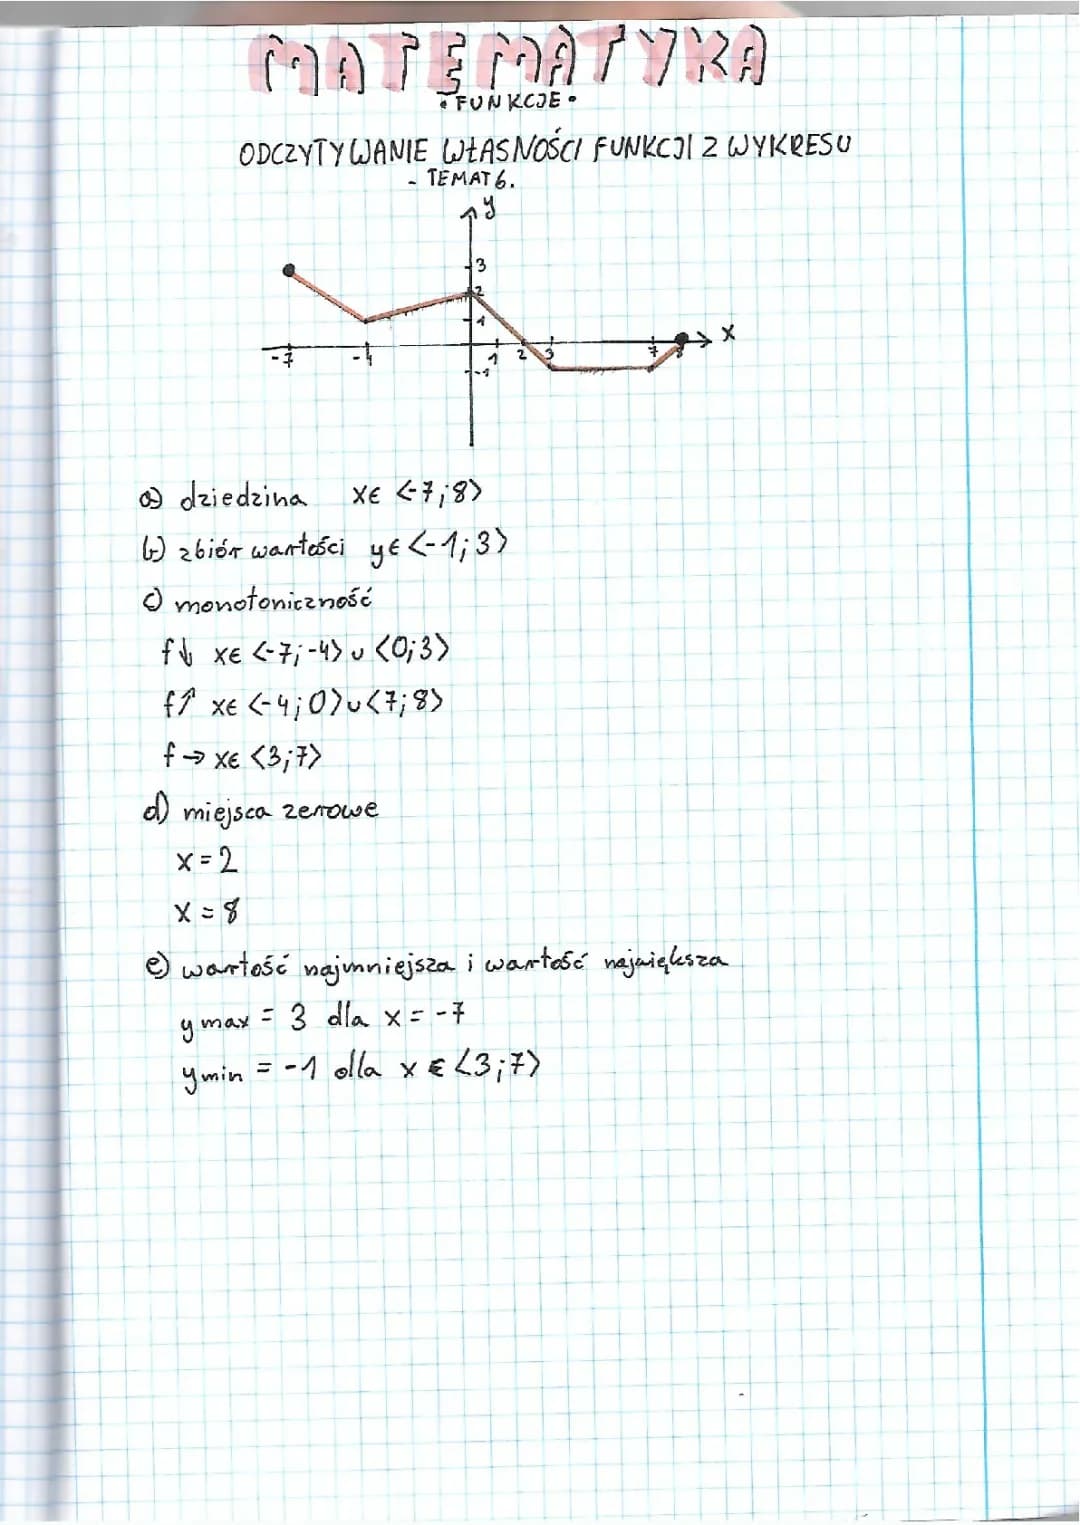 MATEMATYKA
• FUNKCJE •
ODCZYTYWANIE WŁASNOŚCI FUNKCJI Z WYKRESU
- TEMAT 6.
y
3
2
1
x
-7 -4 1 2 3 7 8
-1
a) dziedzina x∈ <-7;8>
b) zbiór wartości y∈<-1;3>
c) monotoniczność
f↓ x∈ <-7;-4> ∪ <0;3>
f↑ x∈ <-4;0>∪<7;8>
f→ x∈ <3;7>
d) miejsca zerowe
x=2
x=8
e) wartość najmniejsza i wartość największa
y max = 3 dla x = -7
y min = -1 dla x ∈ <3;7>